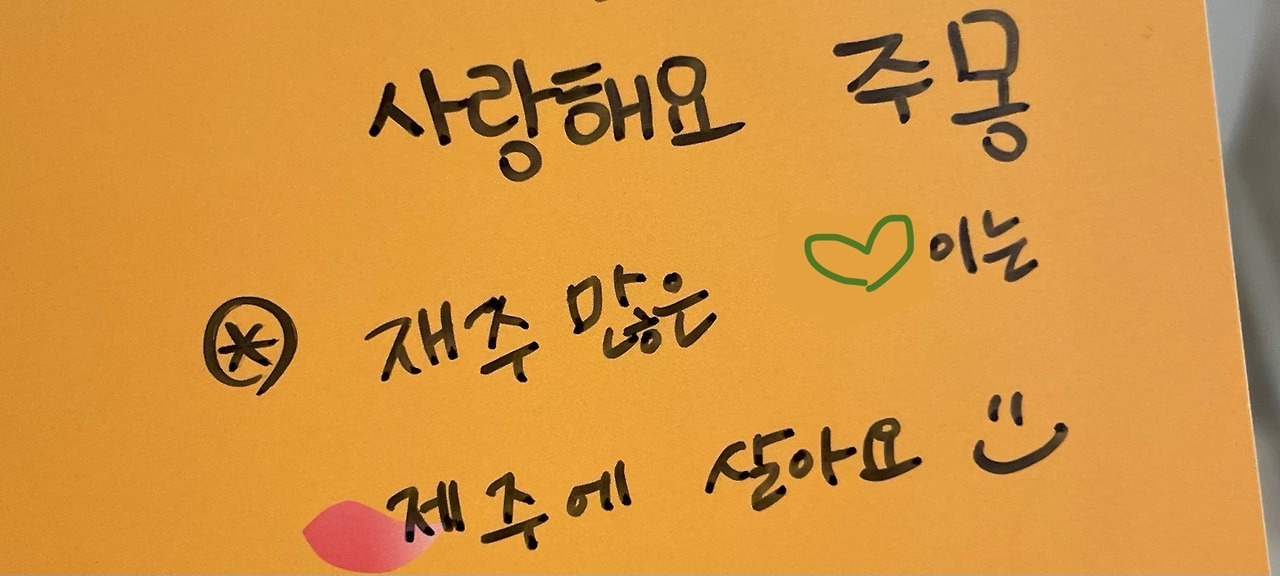 사랑해요 주몽
⊛ 재주 많은 ♡이는
제주에 살아요 :)